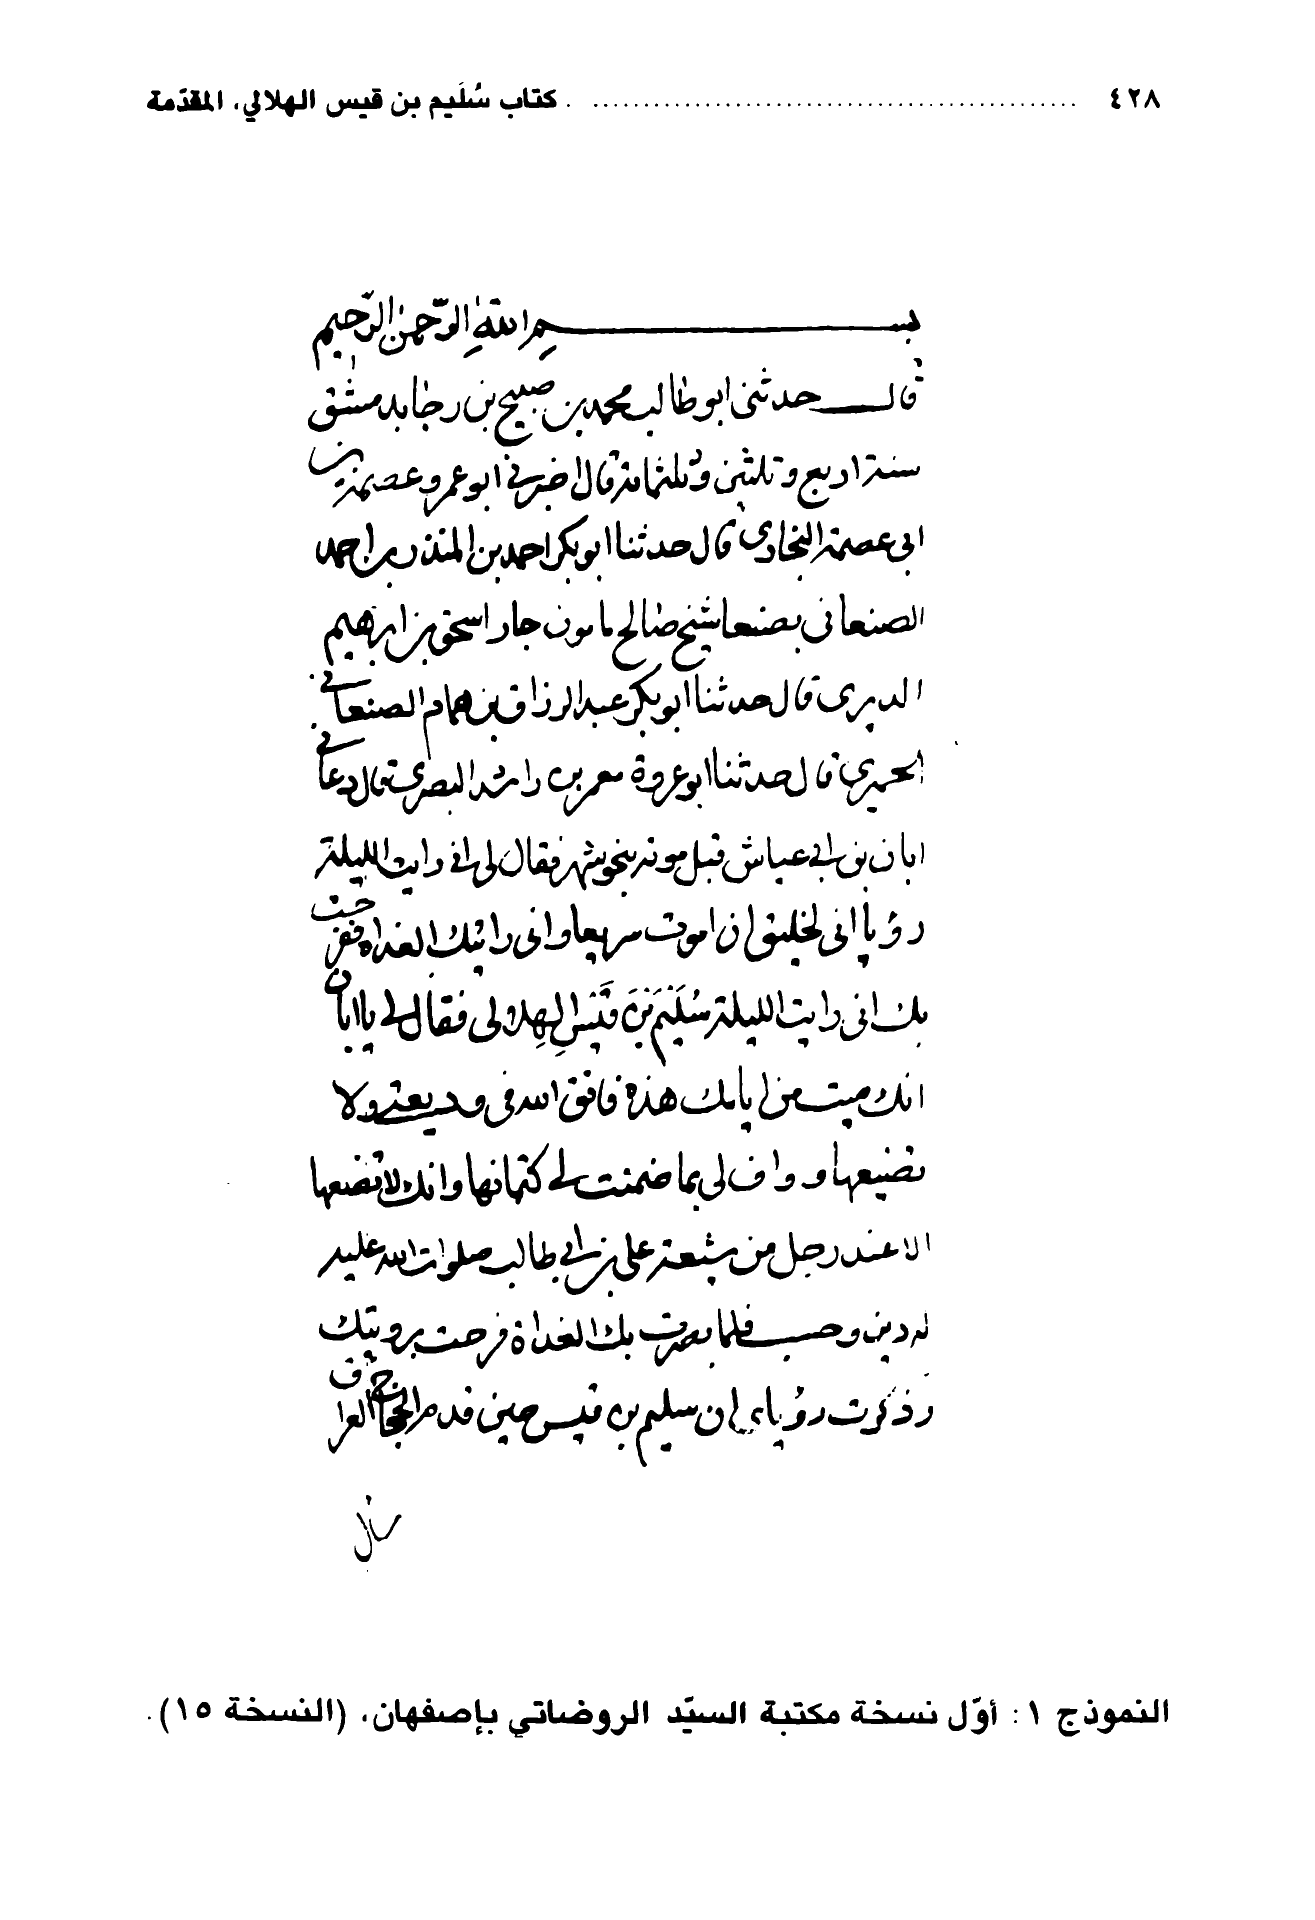 ٤٢٨ ........ كتاب سُلَيم بن قيس الهلالي، المقدّمة
بسم اللهِ الرّحمنِ الرّحيم
قال حدثنى ابو طالب محمد بن صبيح بن رجا بدمشق
سنة اربع وثلثين وثلثمائة قال اخبرني ابو عمرو عصمة بن
ابى عصمة البخارى قال حدثنا ابو بكر احمد بن المنذر بن احمد
الصنعانى بصنعا شيخ صالح مامون جار اسحق بن ابرهيم
الدبرى قال حدثنا ابو بكر عبد الرزاق بن همام الصنعاني
الحميري قال حدثنا ابو عروة معمر بن راشد البصرى قال دعانى
ابان بن ابي عياش قبل موته بنحو شهر فقال لى انى رايت الليلة
رؤيا انى لخليق ان اموت سريعا وانى رايتك الغداة ففرحت
بك انى رايت الليلة سُلَيْمَ بْنَ قَيْسٍ الهِلالى فقال لي يا ابان
انك ميت من ايامك هذه فاتق الله فى وديعتى ولا
تضيعها وواف لى بما ضمنت لى كتمانها وانك لا تضعها
الا عند رجل من شيعة على بن ابي طالب صلوات الله عليه
له دين وحسب فلما بصرت بك الغداة فرحت برويتك
وذكرت رؤياى ان سليم بن قيس حين قدم الحجاج العراق
سال
النموذج ١: أوّل نسخة مكتبة السيّد الروضاتي بإصفهان، (النسخة ١٥).